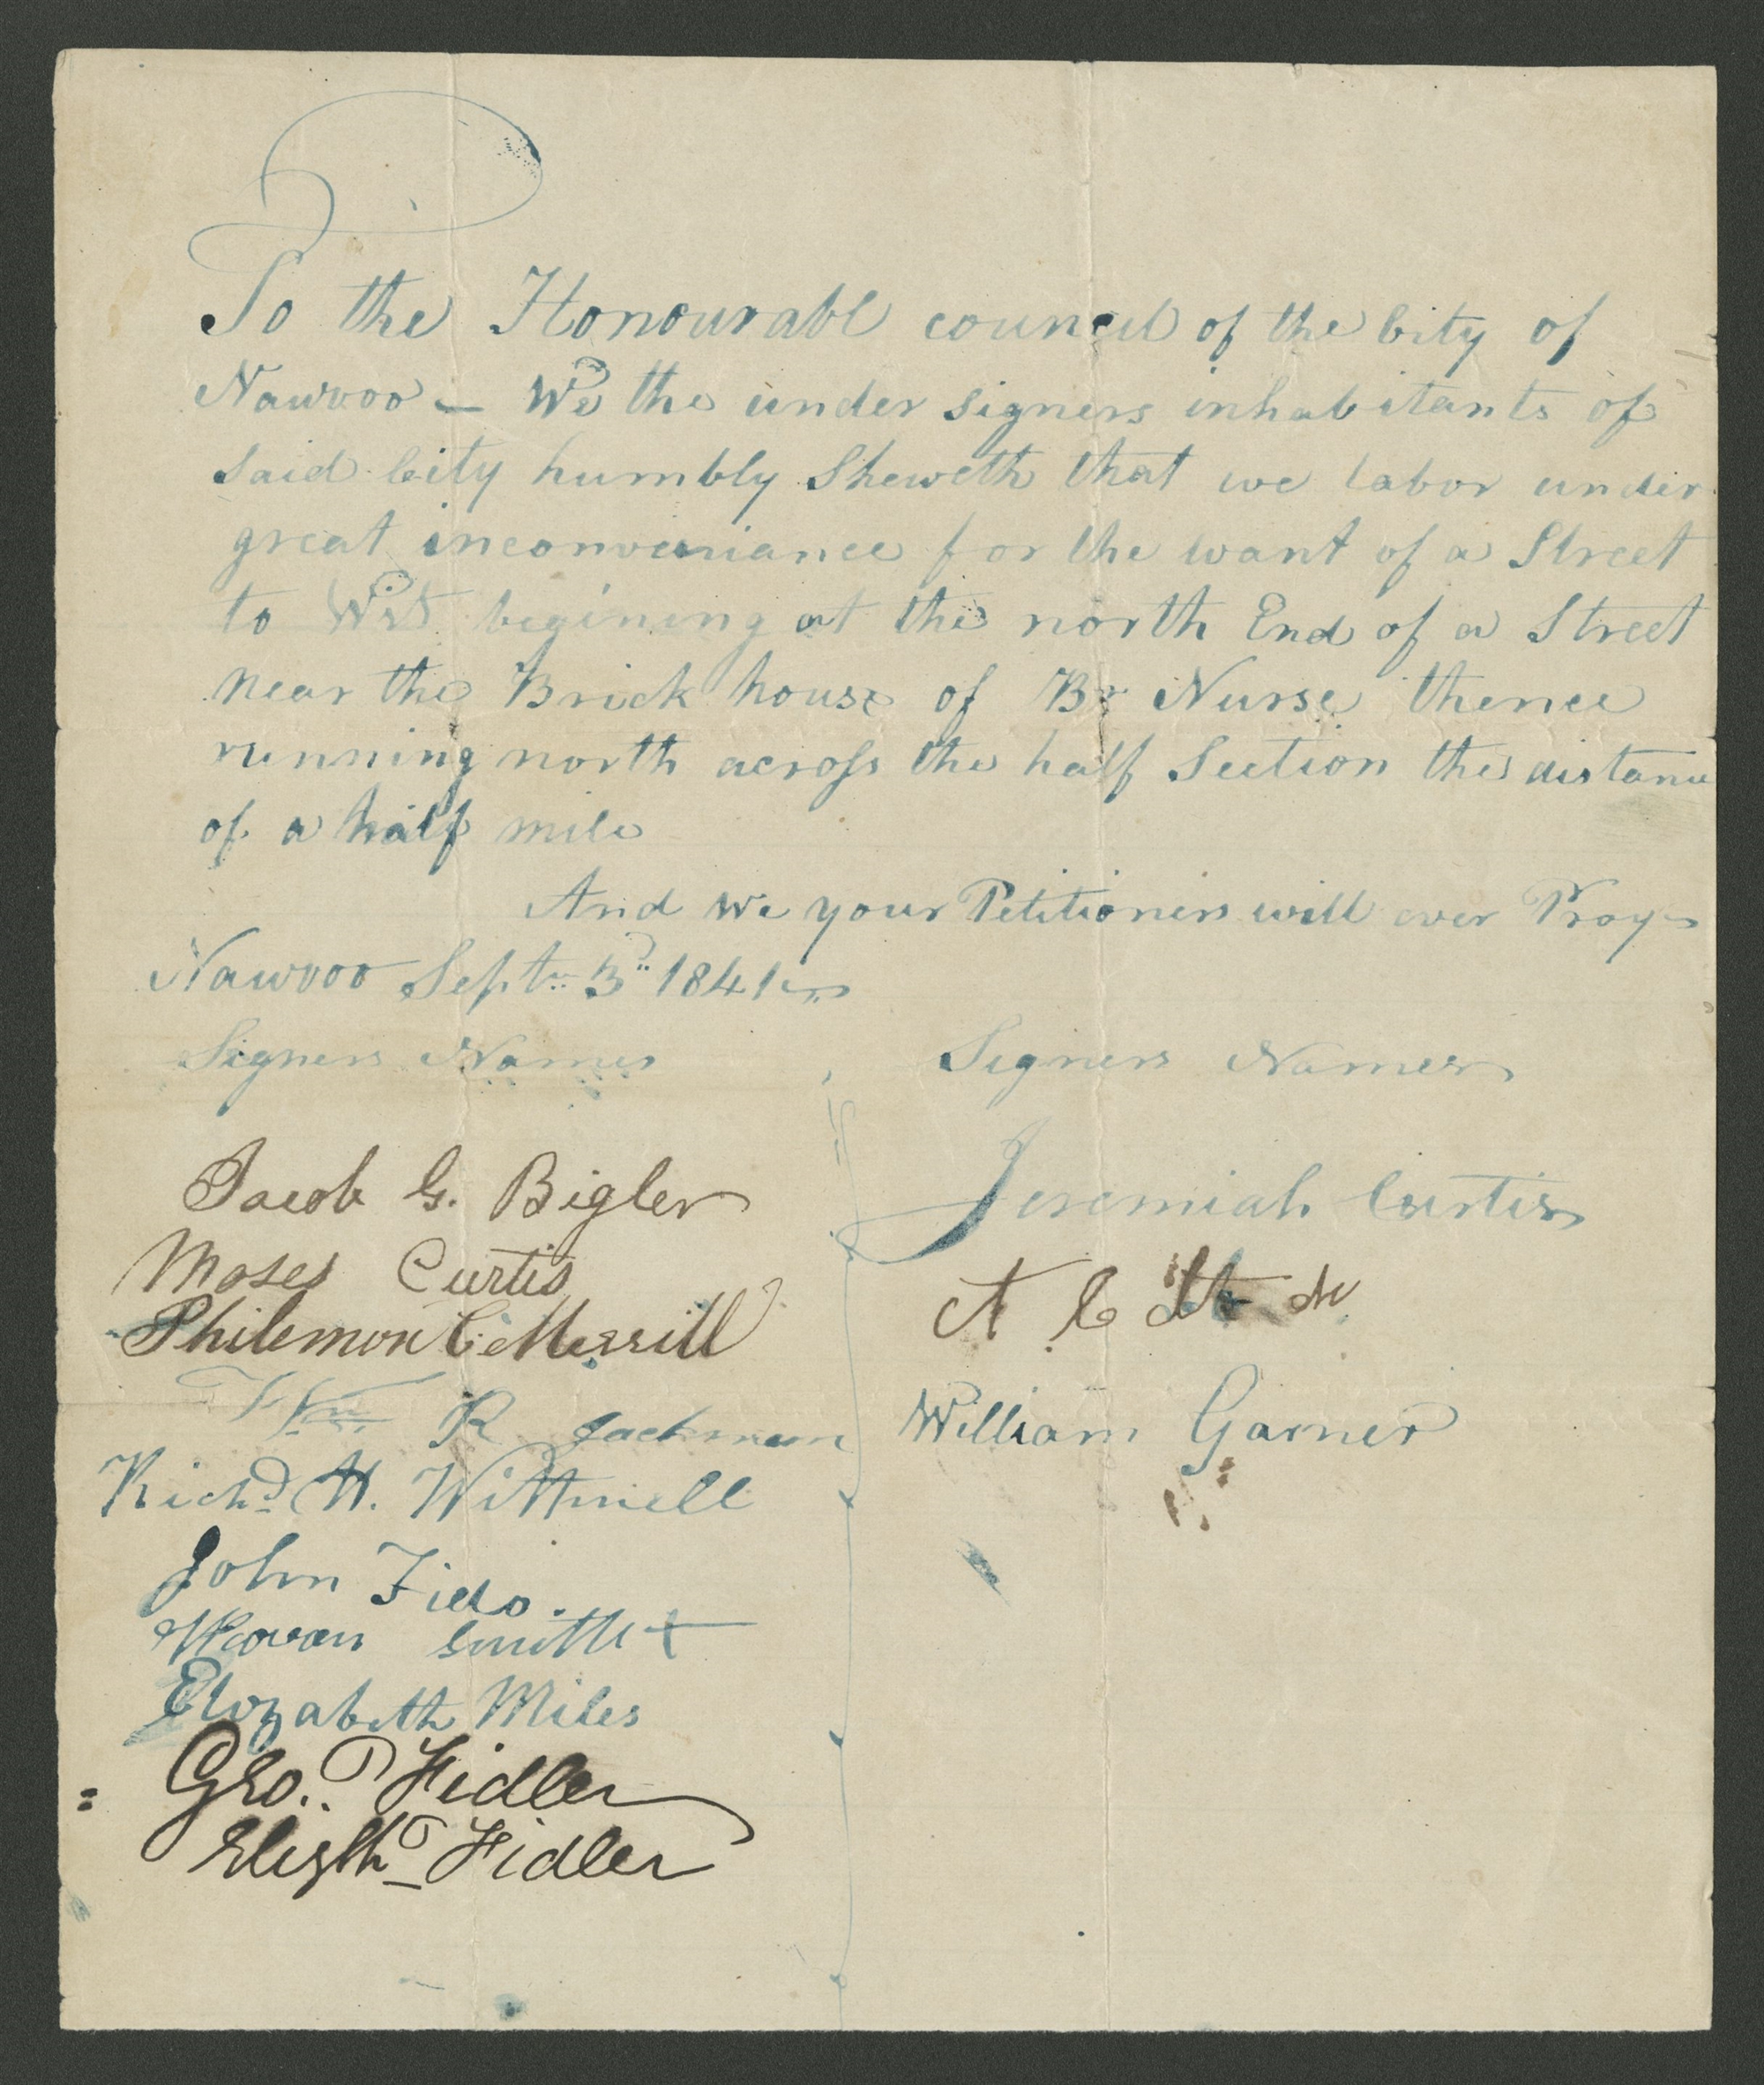 To the Honourabl council of the City of
Nawvoo – We the under signers inhabitants of
said City humbly Sheweth that we labor under
great inconveniance for the want of a Street
to Wit begining at the north End of a Street
near the Brick house of Br Nurse thence
running north across the half Section the distance
of a half mile
And we your Petitioners will ever Pray
Nawvoo Septr 3d 1841
Signers Names
Signers Names
Jacob G. Bigler
Jeremiah Curtis
Moses Curtis
A C
Philemon C. Merrill
Wm R Jackman
William Garner
Richd H. Wittnell
John Fido.
Smith
Elizabeth Miles
Geo. Fidler
Elizth Fidler